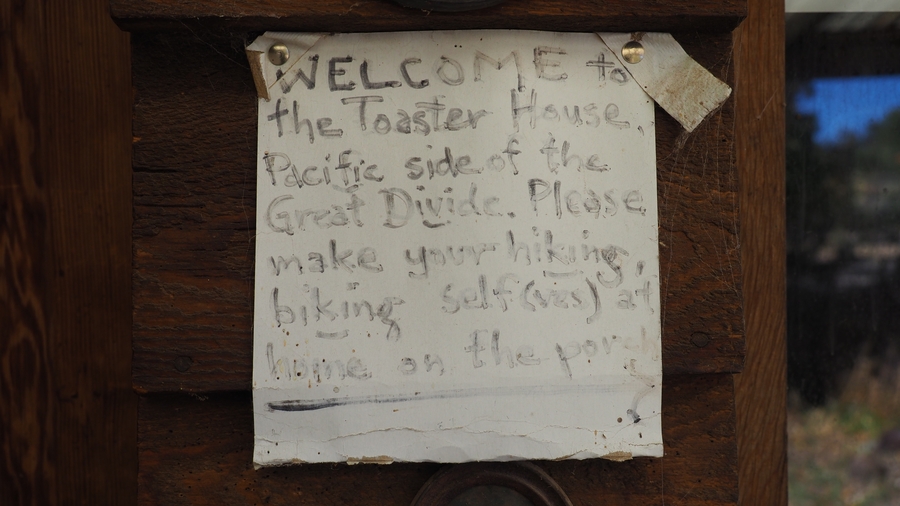 WELCOME to
the Toaster House,
Pacific side of the
Great Divide. Please
make your hiking,
biking self(ves) at
home on the porch